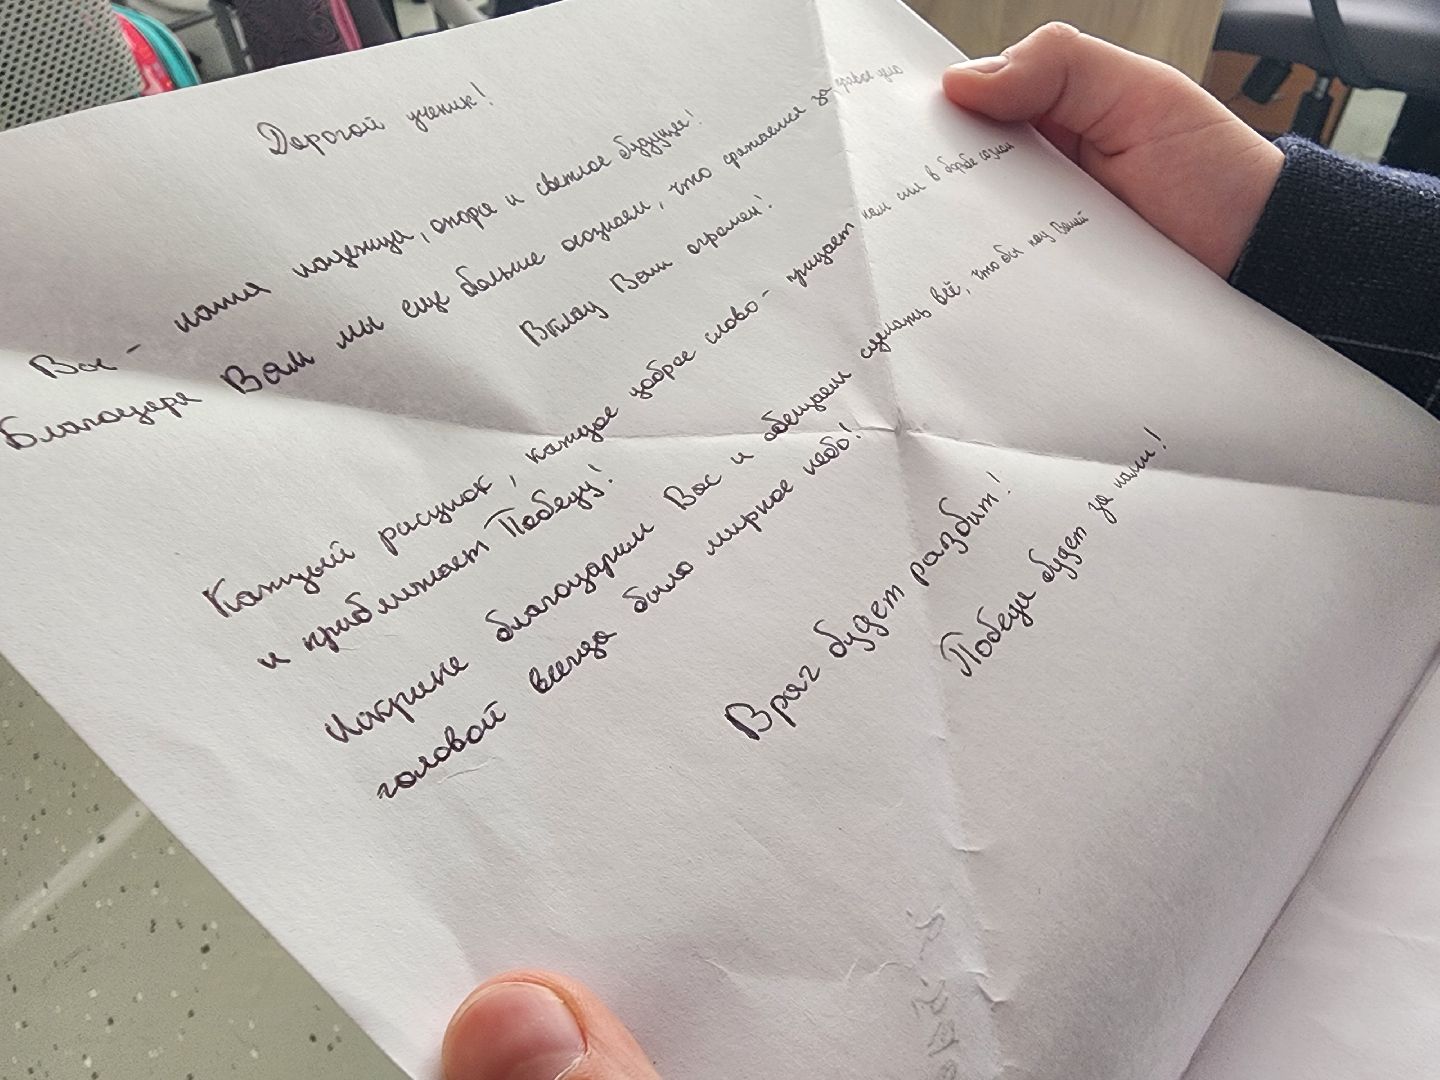 Дорогой ученик!
Вы - наша надежда, опора и светлое будущее!
Благодаря Вам мы еще больше осознаем, что сражаемся за правое дело
Вклад Ваш огромен!
Каждый рисунок, каждое доброе слово - придает нам сил в борьбе
и приближает Победу!
Искрине благодарим Вас и обещаем сделать всё, чтобы над Вашей
головой всегда было мирное небо!
Враг будет разбит!
Победа будет за нами!